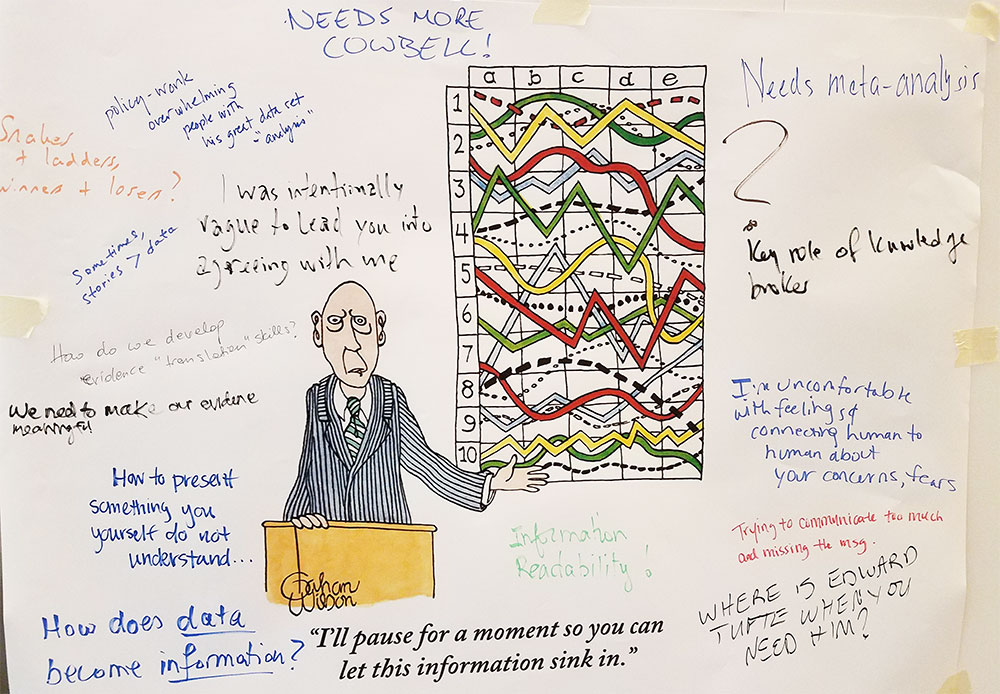 NEEDS MORE
COWBELL!
policy-wonk
overwhelming
people with
his great data set
"analysis"
Snakes
+ ladders,
winners + losers?
I was intentionally
vague to lead you into
agreeing with me
Sometimes,
stories > data
How do we develop
evidence "translation" skills?
We need to make our evidence
meaningful
How to present
something you
yourself do not
understand...
How does data
become information?
a b c d e
1
2
3
4
5
6
7
8
9
10
Graham
Wilson
Information
Readability!
"I'll pause for a moment so you can
let this information sink in."
Needs meta-analysis
?
Key role of knowledge
broker
I'm uncomfortable
with feelings of
connecting human to
human about
your concerns, fears
Trying to communicate too much
and missing the msg.
WHERE IS EDWARD
TUFTE WHEN YOU
NEED HIM?